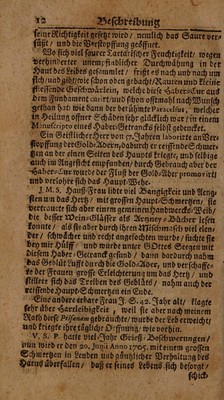 12 Beschreibung
seine Richtigkeit gesetzt wird / neulich das Saure ver-
süsst / und die Verstopffung geöffnet.
Wo sich viel saurer Tartarischer Feuchtigkeit / wegen
verhinderter unempfindlicher Durchwähung in der
Haut des Leibes gesammlet / frisst es nach und nach um
sich / und giebt / wie schon oben gedacht / Rauten und kleine
fliessende Geschwärlein, welche diese Haber-Cur aus
dem Fundament curirt / und schon offtermals nach Wunsch
gethan hat: wie dann der berühmte Paracelsus, welcher
in Heilung offner Schäden sehr glücklich war / in einem
Manuscripto eines Haber-Getrancks selbst gedencket.
Ein Geistlicher Herr von 57. Jahren laborirte an Ver-
stopffung der Gold-Adern, dadurch er reissende Schmer-
tzen an der einen Seiten des Haupts kriegte, und selbige
auch im Angesicht empfunden; durch Gebrauch aber der
Haber-Cur wurde der Fluss der Gold-Ader promovirt
und verlohre sich das Haupt-Wehe.
J. M. S. Hauss-Frau lidte viel Bangigkeit und Aeng-
sten um das Hertz / mit grossen Haupt-Schmertzen, sie
vertrauete sich aber einem gemeinen Handwercks-Weib,
die besser Wein-Gläser als Artzney-Bücher lesen
konnte, als sie aber durch ihren Mischmasch viel elen-
der / schwächer und recht angefochten wurde / suchte sie
bey mir Hülff / und wurde unter GOttes Seegen mit
diesem Haber-Getranck gesund / dann dardurch nahm
das Geblüt Lufft durch die Gold-Ader, und verschaffe-
te der Frauen grosse Erleichterung um das Hertz / und
stelleten sich das Treiben des Geblüts / nahm auch der
reissende Haupt-Schmertzen ein Ende.
Eine andere erbare Frau J. S. 42. Jahr alt / klagte
sehr über Hartleibigkeit / weil sie aber nach meinem
Rath diese gebrauchte / wurde der Leib erweichet
und kriegte ihre tägliche Oeffnung, wie vorhin.
V. S. P. hatte viel Jahr Griess-Beschwerungen /
nun wird er den 20. Junii Anno 1705. mit einem grossen
Schmertzen in Lenden und gäntzlicher Verhaltung des
Harns überfallen / dass er seines Lebens sich besorgt /
schick-